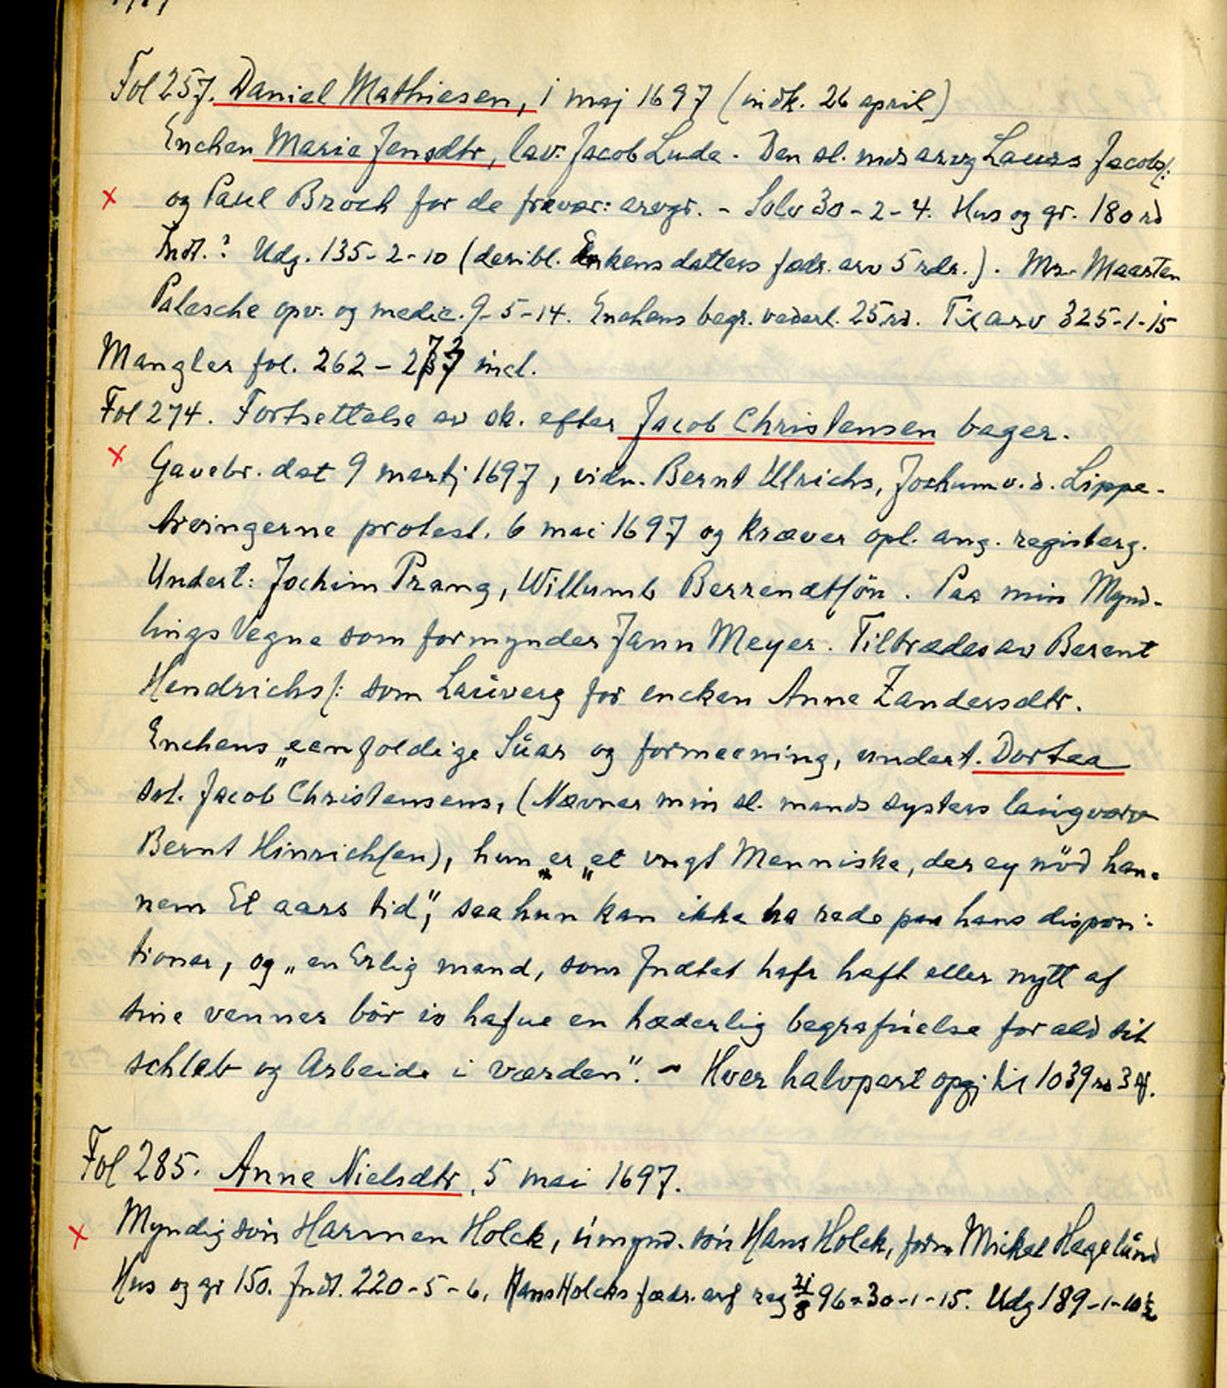 Fol 257. Daniel Mathiesen, 1 maj 1697 (indk. 26 april)
Enchen Maria Jensdtr, lav. Jacob Lude. Den sl. mds arvg Laurs Jacobs:
x og Paul Broch for de fravær: arvgr. - Sølv 30-2-4. Hus og gr. 180 rd
Indt.? Udg. 135-2-10 (deribl. Enkens datters fædr. arv 5 rdr.). Mr. Maarten
Palesche opv. og medic. 9-5-14. Enchens begr. vederl. 25 rd. Til arv 325-1-15
Mangler fol. 262 - 273 incl.
Fol 274. Fortsettelse av sk. efter Jacob Christensen bager.
x Gavebr. dat 9 martj 1697, vidn. Bernt Ulrichs, Jochum v. d. Lippe.
Arvingerne protest. 6 mai 1697 og kræver opl. ang. registerg.
Undert: Jochim Prang, Willumb Berrendtsön. Paa min Mynd-
lings Vegne som formynder Jann Meyer. Tiltrædes av Berent
Hendrichs: som Lauverg for encken Anne Zandersdtr.
Enchens „eenfoldige Suar og formeening, undert. Dortea
sal. Jacob Christensens, (Nævner min sl. mands systers laugværge
Bernt Hinrichsen), hun er „et ungt Menniske, der ey nöd han-
nem Et aars tid", saa hun kan ikke ha rede paa hans disposi-
tioner, og „en Erlig mand, som Indtet hafr haft eller nytt af
sine venner bör io hafue en hæderlig begrafuelse for ald sit
schleb og Arbeide i værden". - Hver halvpart opgj. til 1039 rd 3 #.
Fol 285. Anne Nielsdtr, 5 mai 1697.
x Myndig sön Harmen Holck, umynd. sön Hans Holck, form Mickel Hagelund
Hus og gr 150. Indt. 220-5-6. Hans Holcks fædr. arf reg 21/8 96 = 30-1-15. Udg 189-1-10½